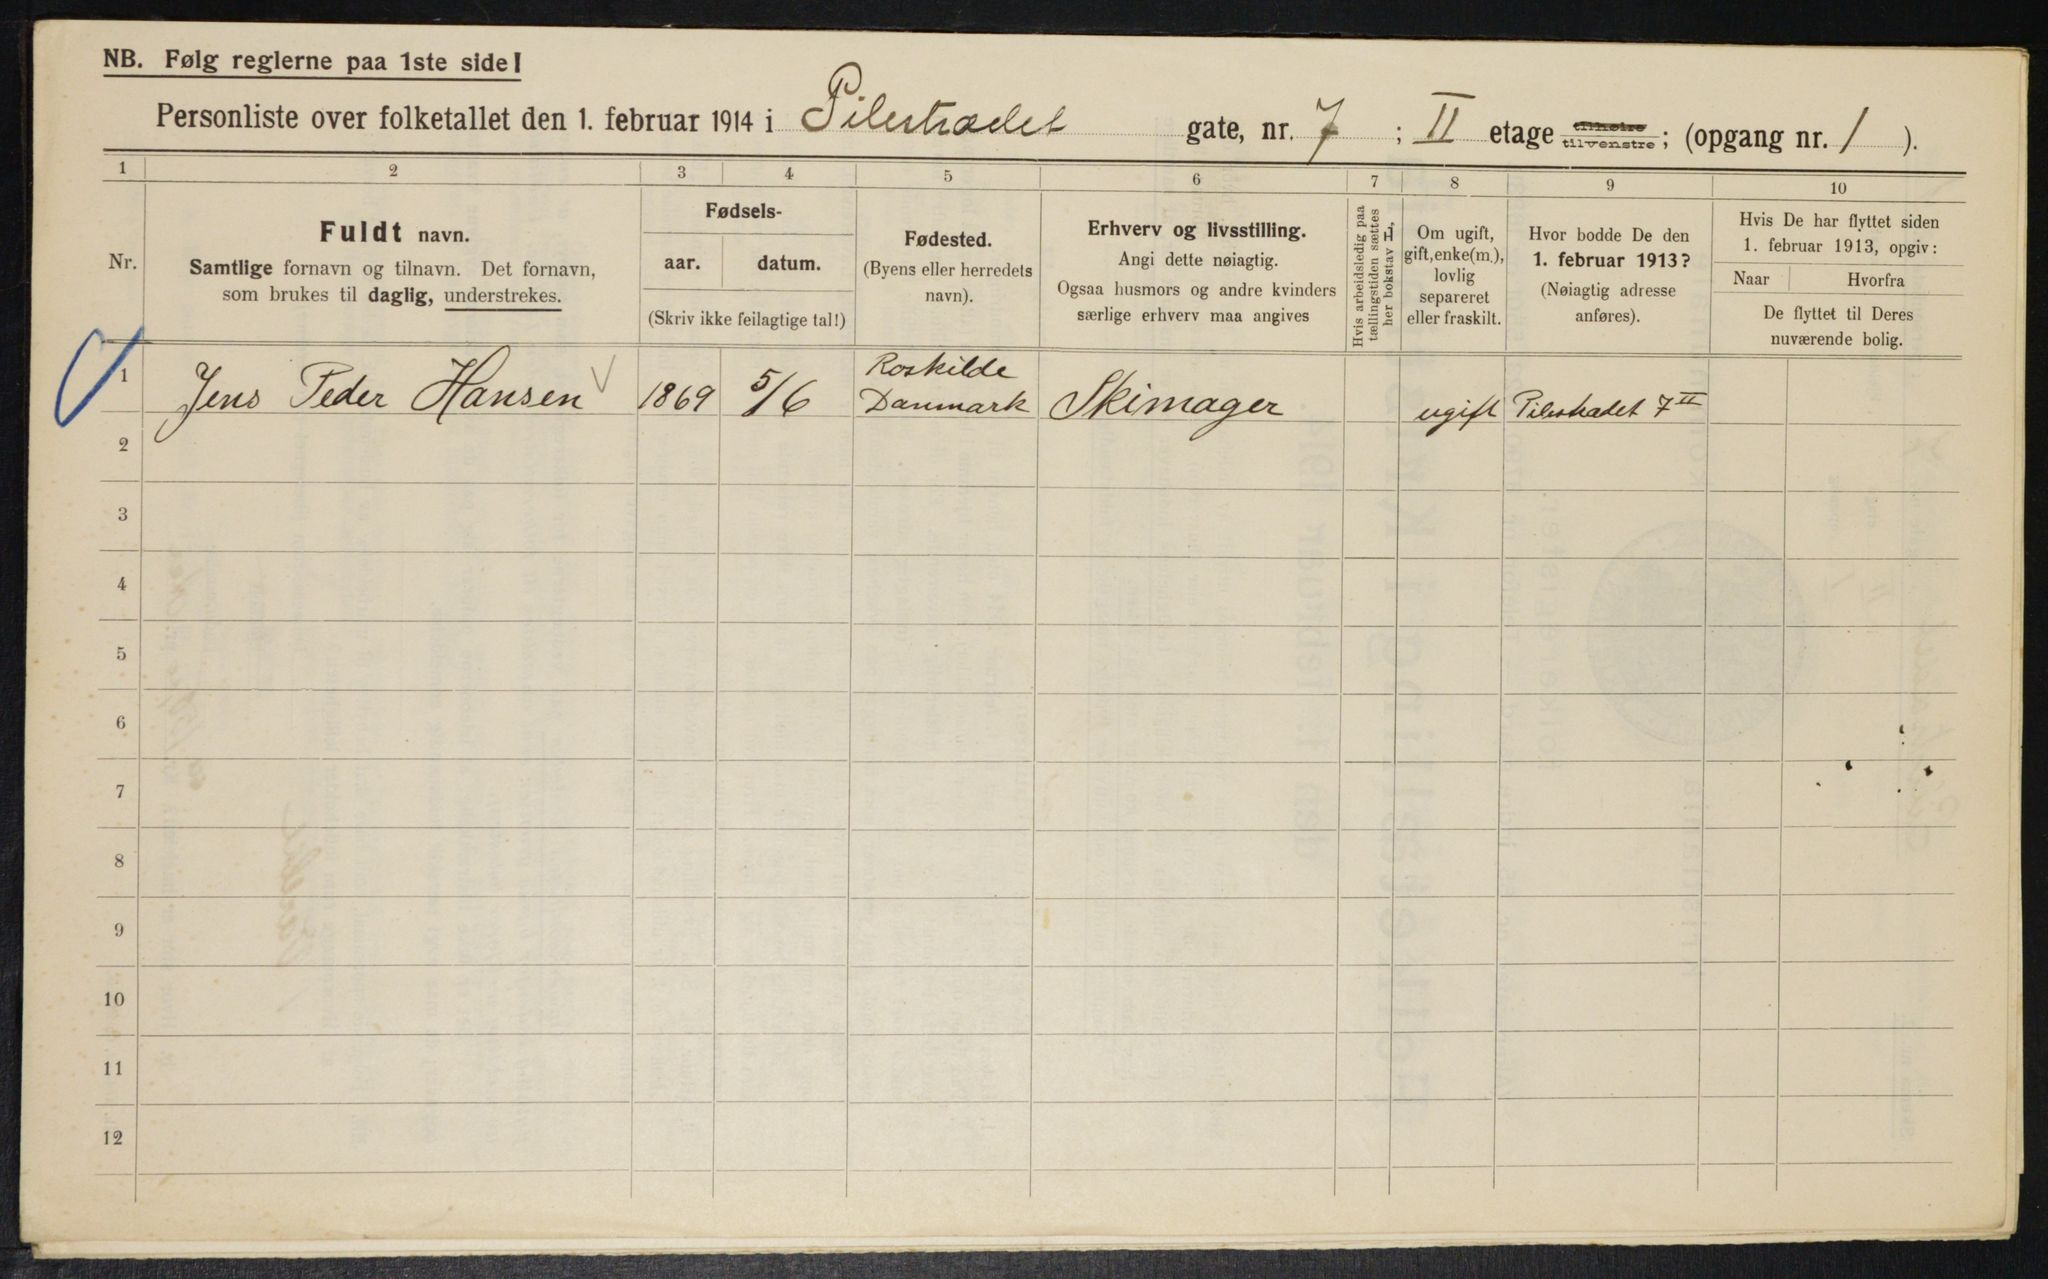 NB. Følg reglerne paa 1ste side!
Personliste over folketallet den 1. februar 1914 i Pilestrædet gate, nr. 7 ; II etage tilhøire tilvenstre ; (opgang nr. 1 ).
1 2 3 4 5 6 7 8 9 10
Nr.
Fuldt navn.
Samtlige fornavn og tilnavn. Det fornavn,
som brukes til daglig, understrekes.
Fødsels-
aar. datum.
(Skriv ikke feilagtige tal!)
Fødested.
(Byens eller herredets
navn).
Erhverv og livsstilling.
Angi dette nøiagtig.
Ogsaa husmors og andre kvinders
særlige erhverv maa angives
Hvis arbeidsledig paa
tællingstiden sættes
her bokstav L.
Om ugift,
gift, enke(m.),
lovlig
separeret
eller fraskilt.
Hvor bodde De den
1. februar 1913?
(Nøiagtig adresse
anføres).
Hvis De har flyttet siden
1. februar 1913, opgiv:
Naar Hvorfra
De flyttet til Deres
nuværende bolig.
1 Jens Peder Hansen 1869 5/6 Roskilde
Danmark Skimager ugift Pilestrædet 7 II
2
3
4
5
6
7
8
9
10
11
12